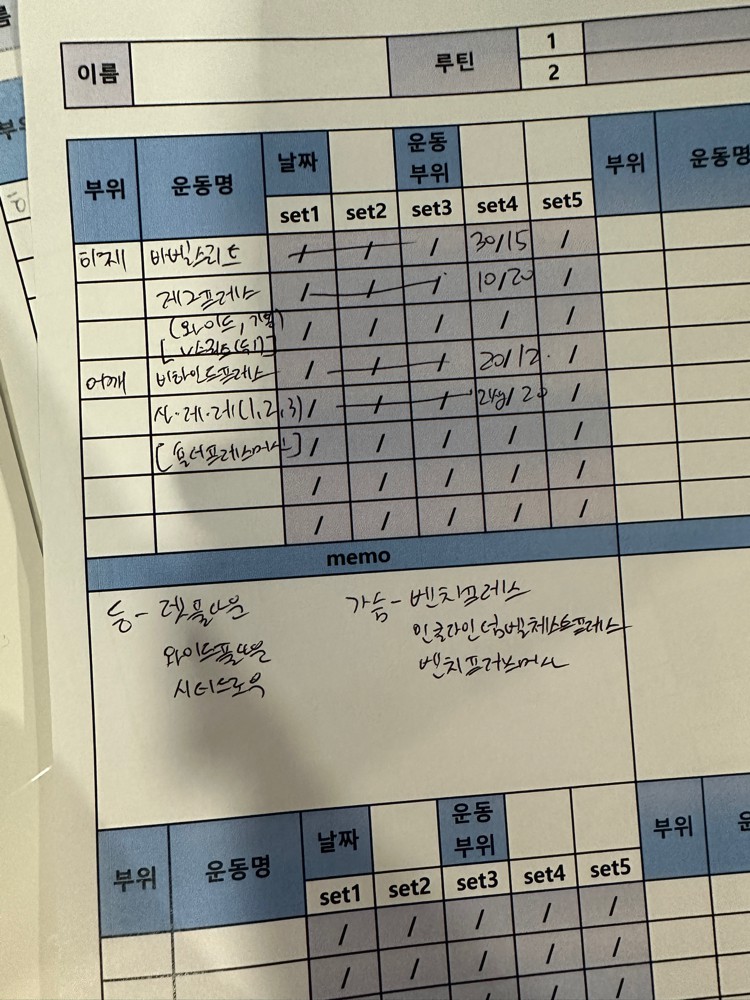 이름 루틴 1
2
부위 운동명 날짜 운동 부위 부위 운동명
set1 set2 set3 set4 set5
하체 바벨스쿼트 / / / 30/15 /
레그프레스 / / / 10/20 /
(와이드, / / / / /
어깨 비하인드프레스 / / / 20/12. /
사·레·레(1,2,3) / / / 2kg/20 /
[숄더프레스머신] / / / / /
/ / / / /
/ / / / /
memo
등- 렛풀다운 가슴- 벤치프레스
와이드풀다운 인클라인덤벨체스트프레스
시티드로우 벤치프레스머신
부위 운동명 날짜 운동 부위 부위
set1 set2 set3 set4 set5
/ / / / /
/ / / / /